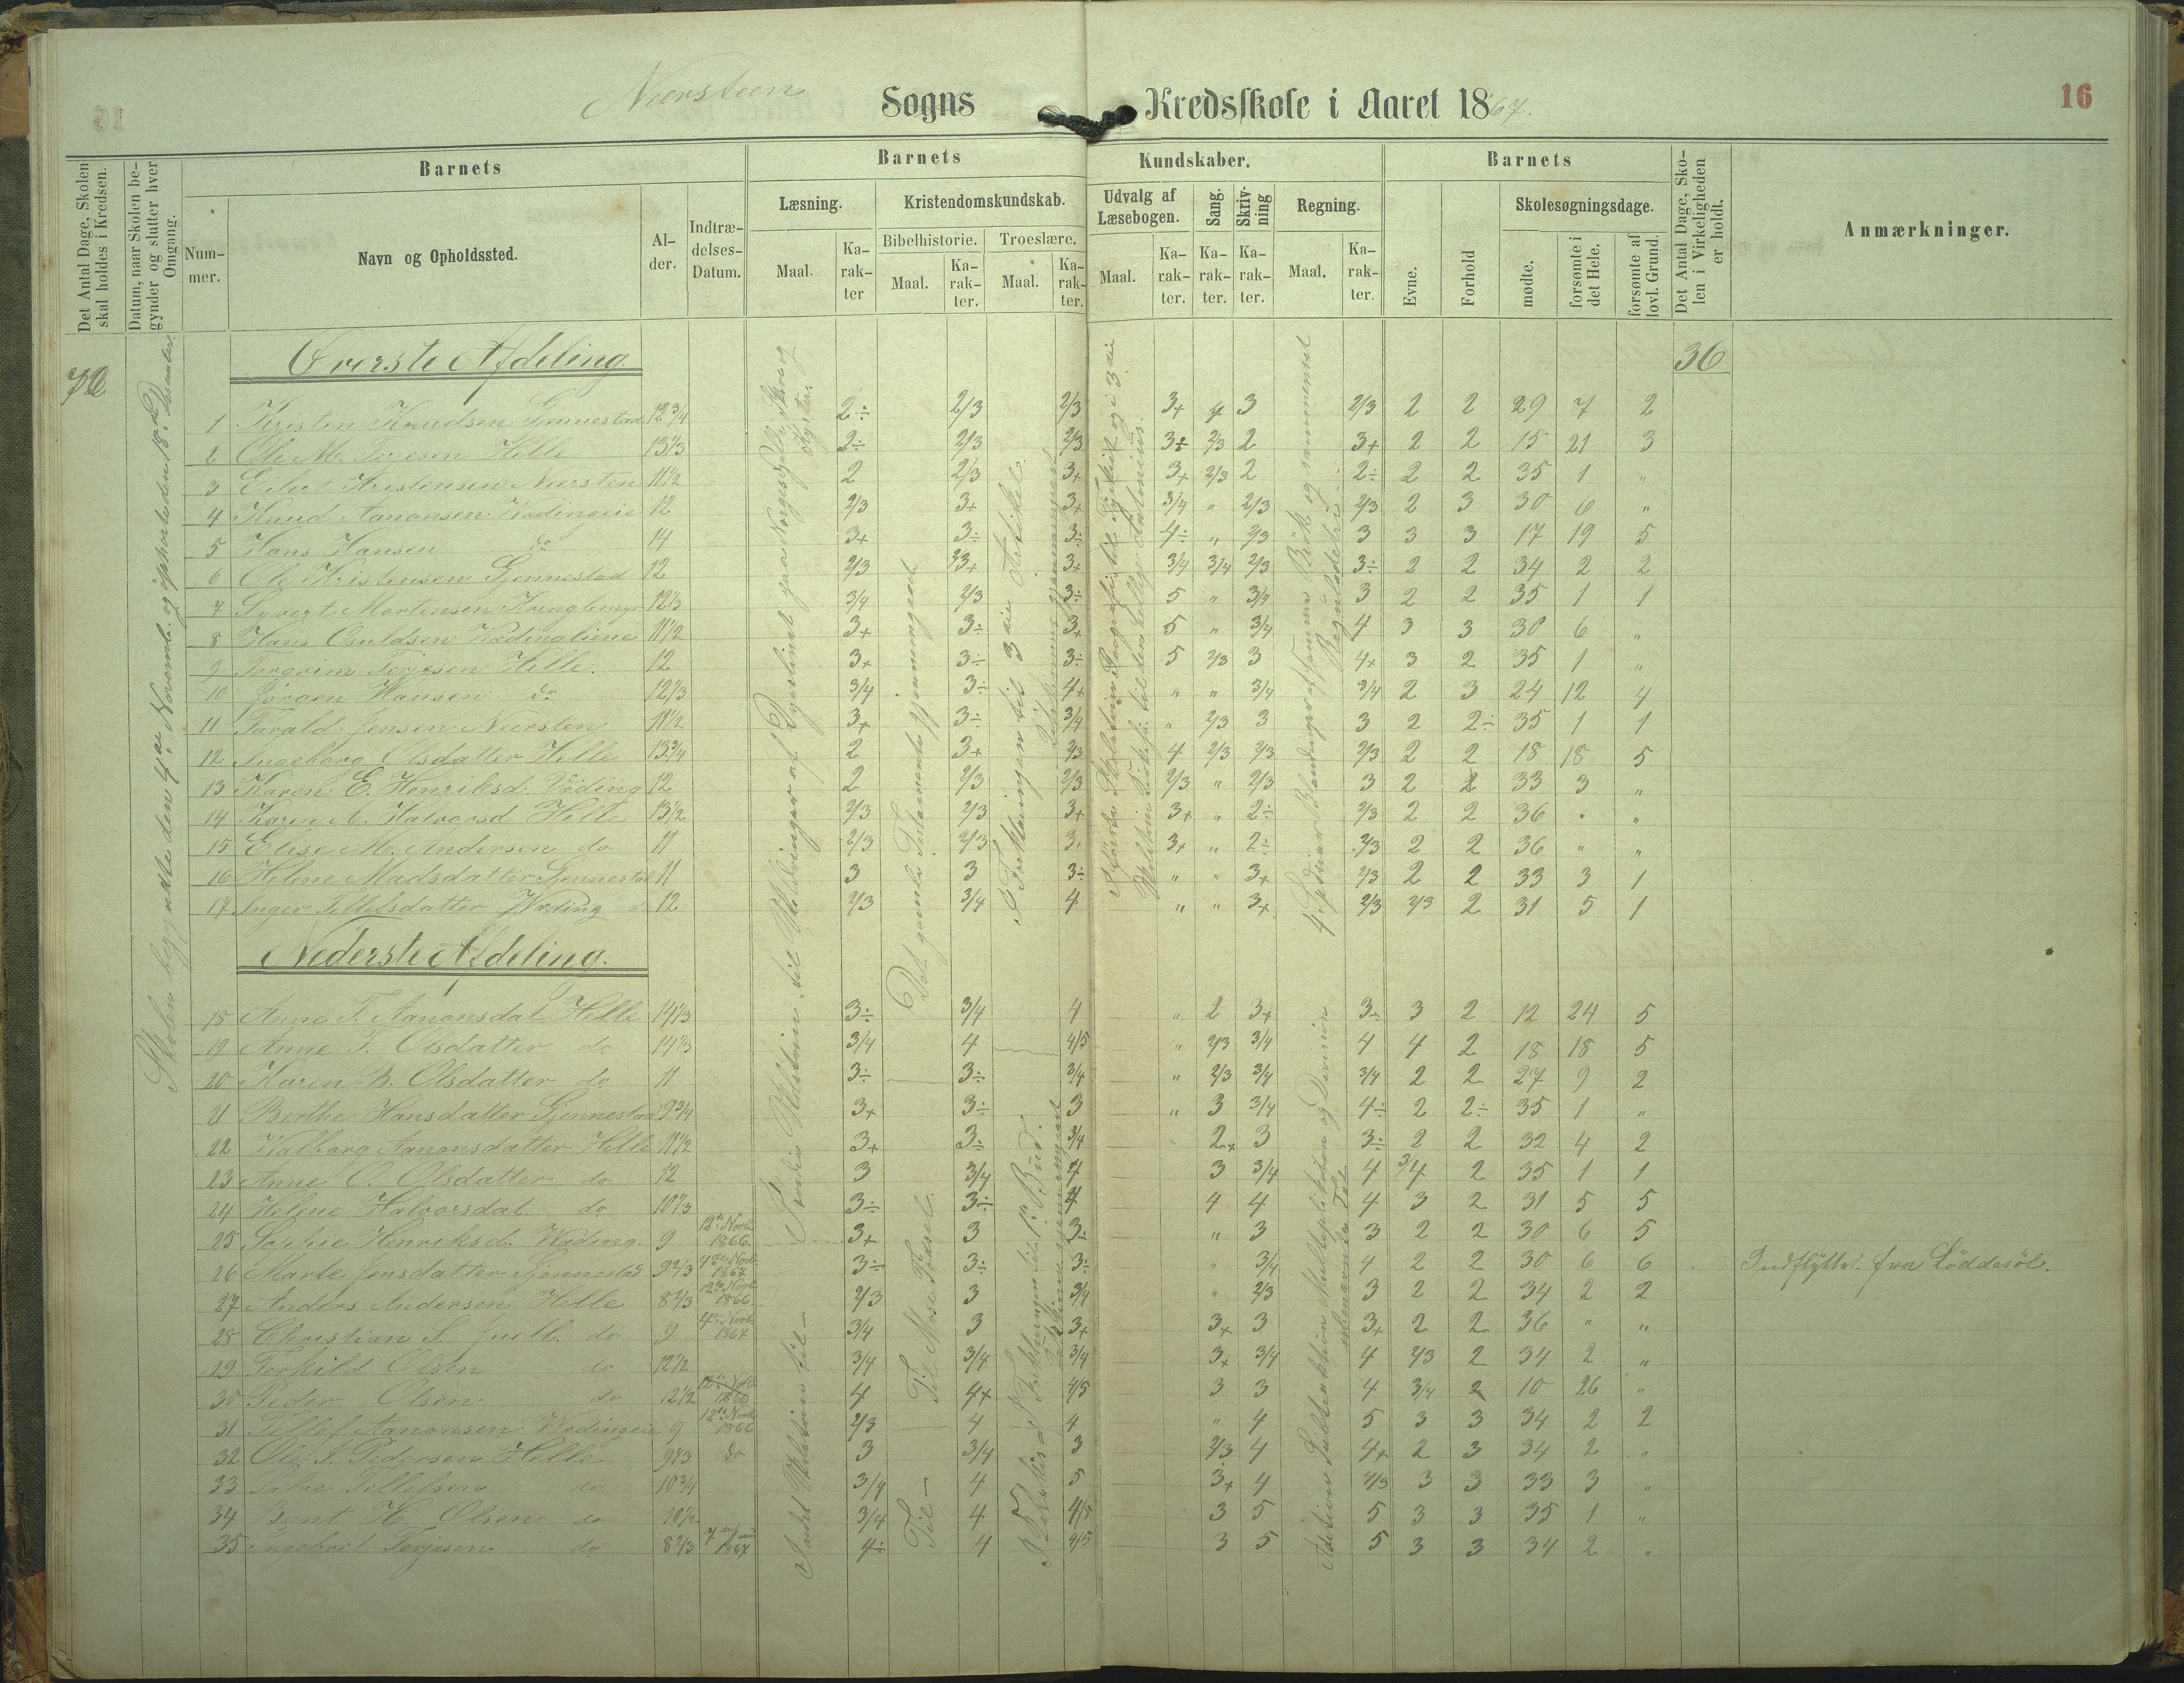 Neersteen Sogns Kredsskole i Aaret 1867.
16
Det Antal Dage, Skolen skal holdes i Kredsen.
Datum, naar Skolen begynder og slutter hver Omgang.
Barnets
Nummer.
Navn og Opholdssted.
Alder.
Indtrædelses-Datum.
Barnets Kundskaber.
Læsning.
Maal.
Karakter
Kristendomskundskab.
Bibelhistorie.
Maal.
Karakter.
Troeslære.
Maal.
Karakter.
Udvalg af Læsebogen.
Maal.
Karakter.
Sang.
Karakter.
Skrivning
Karakter.
Regning.
Maal.
Karakter.
Barnets
Evne.
Forhold
Skolesøgningsdage.
mødte.
forsømte i det Hele.
forsømte af lovl. Grund.
Det Antal Dage, Skolen i Virkeligheden er holdt.
Anmærkninger.
72
Skolen begyndte den 4de Novembr. og ophørte den 18de Desember.
Øverste Afdeling
36
1 Kristen Knudsen Gjennestad 12 3/4 2÷ 2/3 2/3 3+ 4 3 2/3 2 2 29 7 2
2 Ole M. Terjesen Helle 13 1/3 2÷ 2/3 2/3 3÷ 2/3 2 3+ 2 2 15 21 3
3 Eilert Kristensen Neersten 11 1/2 2 2/3 3+ 3+ 2/3 2 2÷ 2 2 35 1 "
4 Knud Aanonsen 12 2/3 3+ 3+ 3/4 " 2/3 2/3 2 3 30 6 "
5 Hans Hansen do 14 3+ 3÷ 3÷ 4÷ " 2/3 3 3 3 17 19 5
6 Ole Kristensen Gjennestad 12 2/3 3+ 3+ 3/4 3/4 2/3 3÷ 2 2 34 2 2
7 Syvert Martensen 12 1/3 3/4 2/3 3÷ 5 " 3/4 3 2 2 35 1 1
8 Hans Osuldsen 11 1/2 3+ 3÷ 3+ 5 " 3/4 4 3 3 30 6 "
9 Torgrim Terjesen Helle. 12 3+ 3÷ 3÷ 5 2/3 3 4+ 3 2 35 1 "
10 Jörgen Hansen do 12 1/3 3/4 3÷ 4+ " " 3/4 3/4 2 3 24 12 4
11 Tarald Jensen Neersten 11 1/2 3+ 3÷ 3/4 " 2/3 3 3 2 2÷ 35 1 1
12 Ingeborg Olsdatter Helle 13 3/4 2 3+ 2/3 4 2/3 2/3 2/3 2 2 18 18 5
13 Karen E. Henriksd. Vöding 12 2 2/3 2/3 2/3 " 2/3 3 2 2 33 3 "
14 Karen A. Halvorsd Helle 13 1/2 2/3 2/3 3+ 3+ " 2÷ 2/3 2 2 36 " "
15 Elise M. Andersen do 11 2/3 2/3 3. 3+ " 2÷ 2/3 2 2 36 " "
16 Helene Madsdatter Gjennestad 11 3 3 3÷ " " 3+ 2/3 2 2 33 3 1
17 Inger Tellefsdatter Wöding 12 2/3 3/4 4 " " 3+ 2/3 2/3 2 31 5 1
Nederste Afdeling.
18 Anne T. Aanonsdat Helle 14 1/3 3÷ 3/4 4 " 2 3+ 3÷ 3 2 12 24 5
19 Anne T. Olsdatter do 14 1/3 3/4 4 4/5 " 2/3 3/4 4 4 2 18 18 5
20 Karen B. Olsdatter do 11 3÷ 3÷ 3/4 " 2/3 3/4 3/4 2 2 27 9 2
21 Berthe Hansdatter Gjennestad 9 3/4 3+ 3÷ 3 " 3 3/4 4÷ 2 2÷ 35 1 "
22 Valborg Aanonsdatter Helle 11 1/2 3+ 3÷ 3/4 2+ 3 3÷ 2 2 32 4 2
23 Anne O. Olsdatter do 12 3 3/4 4 3 3/4 4 3/4 2 35 1 1
24 Helene Halvorsdat do 10 1/3 3÷ 3÷ 4 4 4 4 3 2 31 5 5
25 Sophie Henriksd. Wöding. 9 12te Novb. 1866. 3+ 3 3÷ " 3 3 2 2 30 6 5
26 Marte Jensdatter Gjennestad 9 2/3 4de Novb. 1867 3÷ 3÷ 3÷ " 3/4 4 2 2 30 6 6 Indflyttet fra Löddesöl.
27 Anders Andersen Helle 8 2/3 12te Novb. 1866 2/3 3 3/4 " 2/3 3 2 2 34 2 2
28 Christian S. Juell. do 9 4de Novb. 1867 3/4 3 3+ 3+ 3 3+ 2 2 36 " "
29 Terkild Olsen do 12 1/2 3/4 3/4 3/4 3+ 3/4 4 2/3 2 34 2 "
30 Peder Olsen do 12 1/2 4 4+ 4/5 3 3 4 3/4 2 10 26 "
31 Tellef Aanonsen 9 12te Novb. 1866 2/3 4 4 " 4 5 3 3 34 2 2
32 Ole S. Pedersen Helle 9 1/3 do 3 3/4 3 2/3 4 4+ 2 3 34 2 "
33 Salve Tellefsen do 10 3/4 3/4 4 5 3+ 4 4/5 3 3 33 3 "
34 Bent H. Olsen do 10 1/2 3/4 4 4/5 3 5 5 3 3 35 1 "
35 Ingebret Terjesen do 8 2/3 1867 4÷ 4 4/5 3 5 5 3 3 34 2 "
Det gamle Testamente gjennemgaaet
Til Mose Födsel.